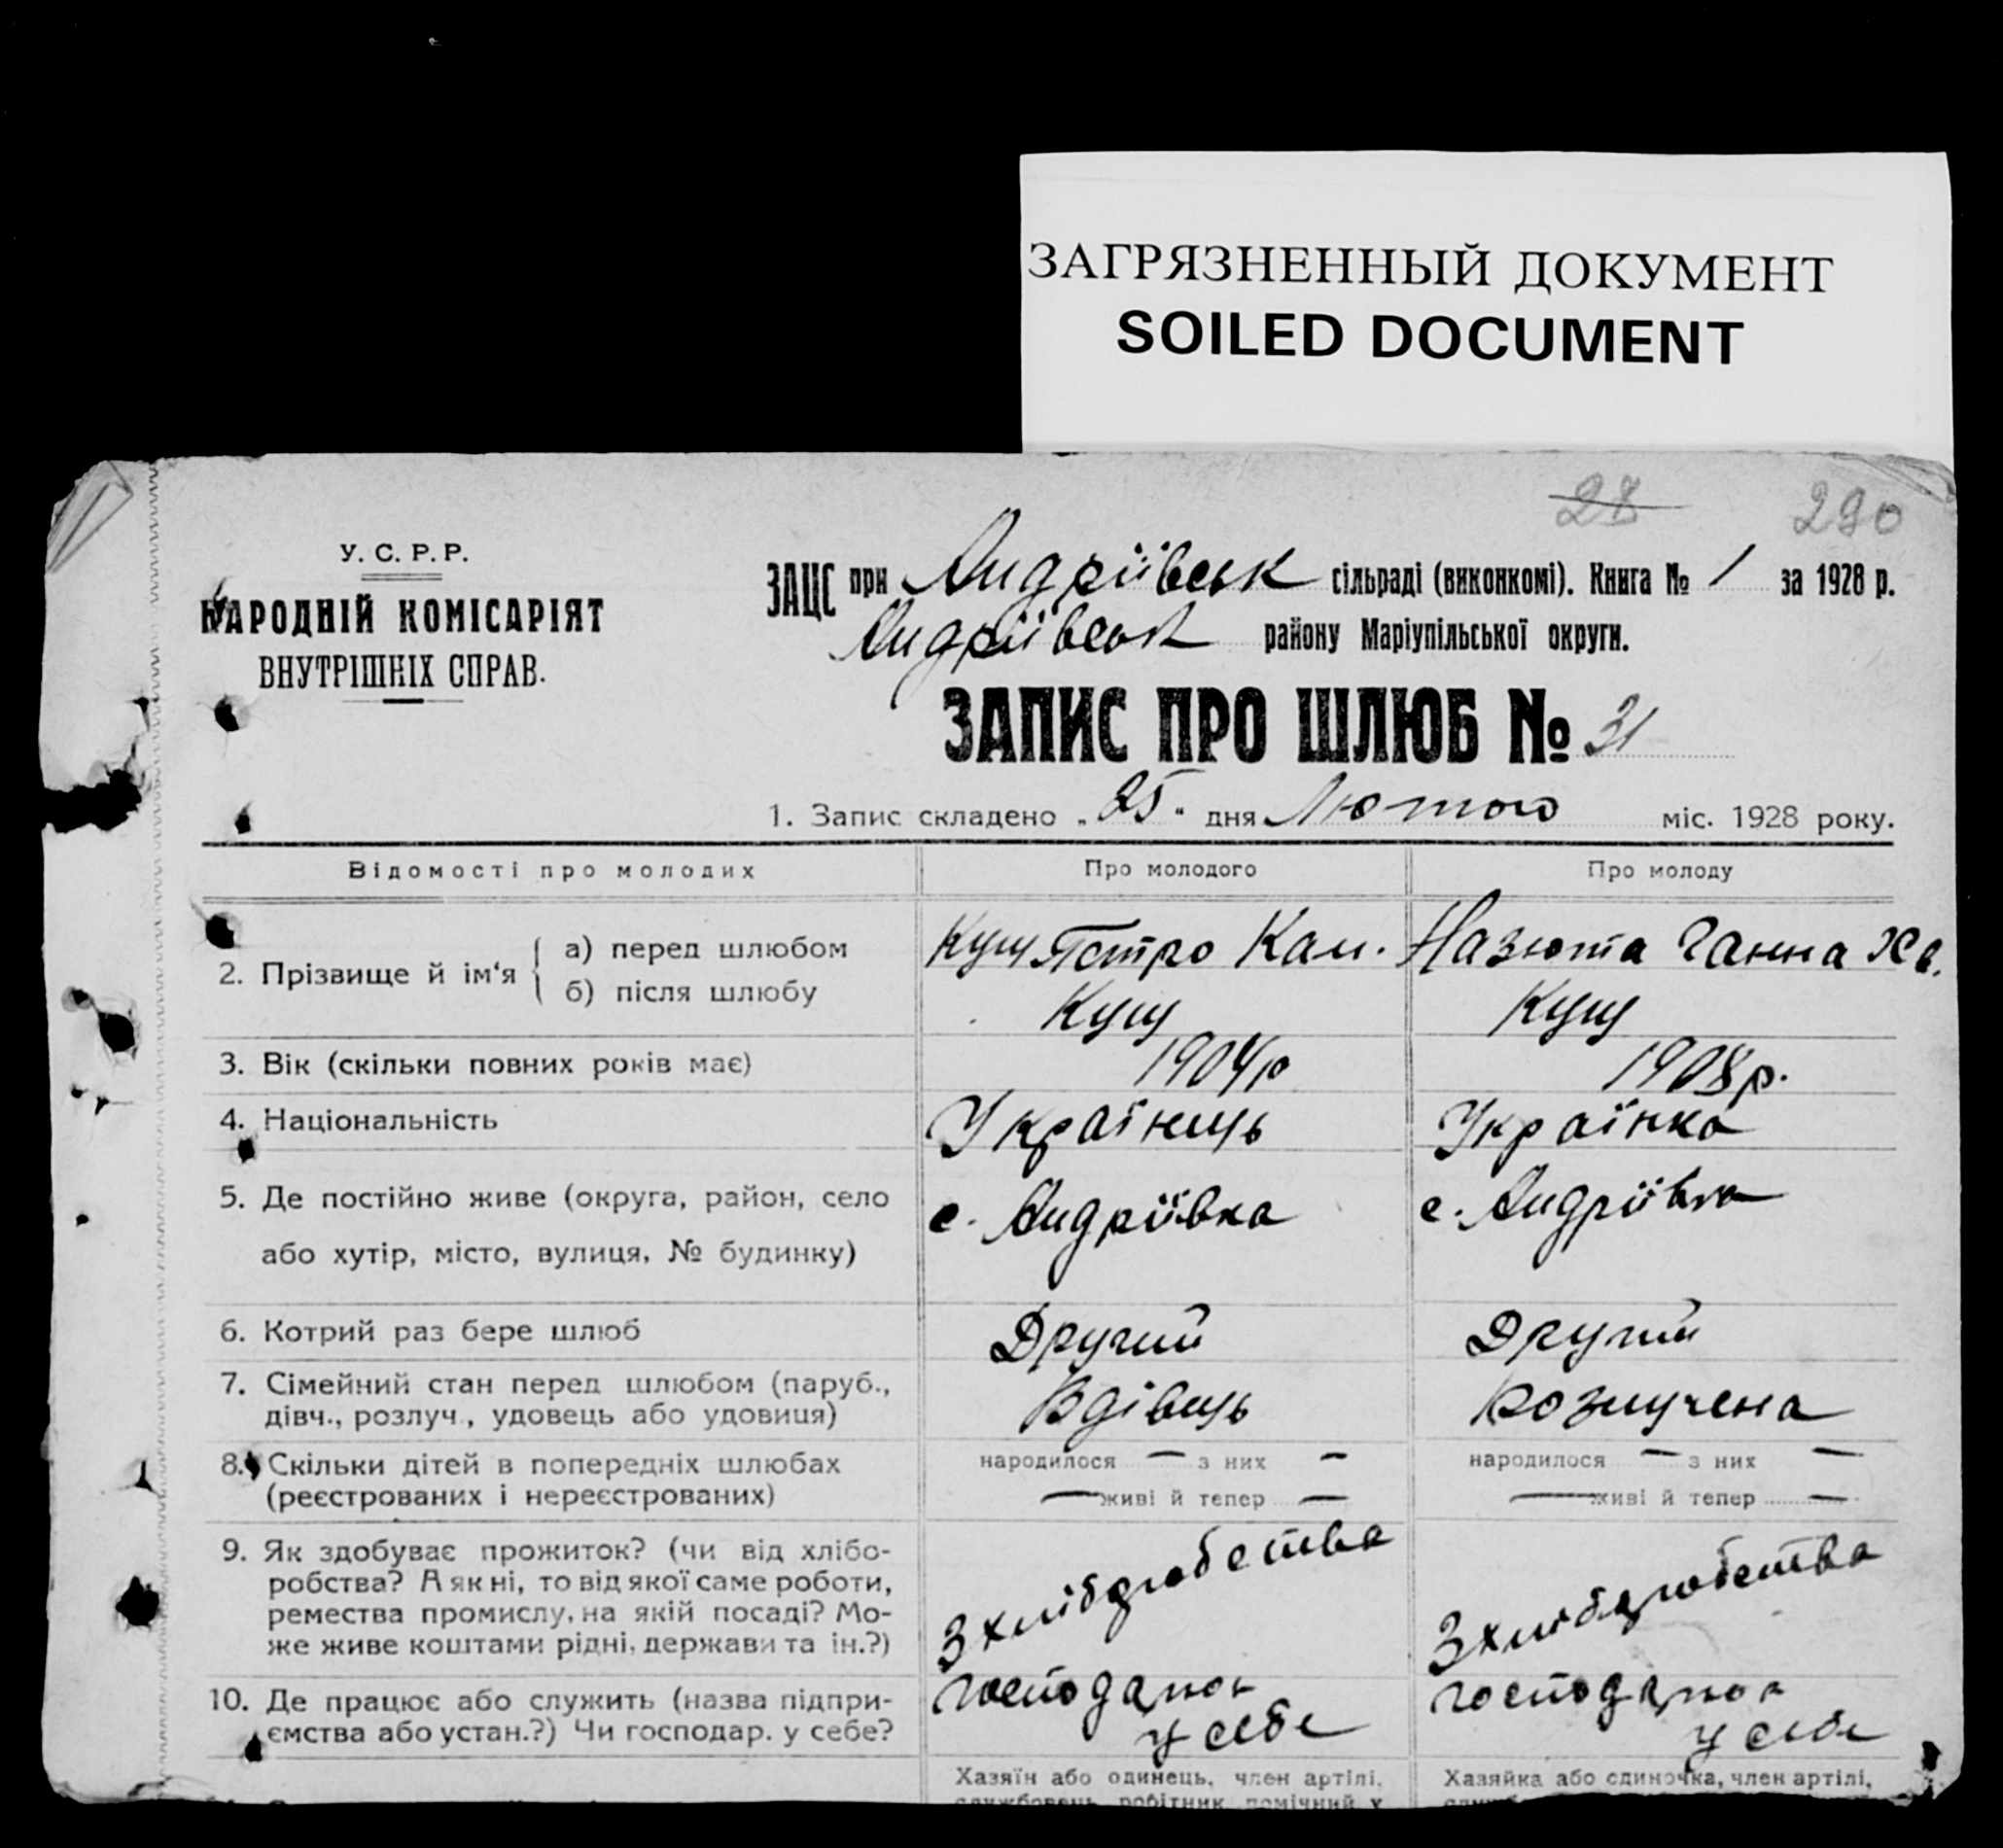 ЗАГРЯЗНЕННЫЙ ДОКУМЕНТ
SOILED DOCUMENT
28 290
У. С. Р. Р.
НАРОДНІЙ КОМІСАРІЯТ
ВНУТРІШНІХ СПРАВ.
ЗАЦС при Андріївськ сільраді (виконкомі). Книга № 1 за 1928 р.
Андріївськ району Маріупільської округи.
ЗАПИС ПРО ШЛЮБ № 31
1. Запис складено „25" дня Лютого міс. 1928 року.
Відомості про молодих Про молодого Про молоду
2. Прізвище й ім'я { а) перед шлюбом Кущ Петро Кал. Назюта Ганна Хв.
б) після шлюбу Кущ Кущ
3. Вік (скільки повних років має) 1904 р 1908 р.
4. Національність Українець Українка
5. Де постійно живе (округа, район, село
або хутір, місто, вулиця, № будинку)
с. Андріївка с. Андріївка
6. Котрий раз бере шлюб Другий Другий
7. Сімейний стан перед шлюбом (паруб.,
дівч., розлуч., удовець або удовиця)
Вдівець Розлучена
8. Скільки дітей в попередніх шлюбах
(реєстрованих і нереєстрованих)
народилося — з них — народилося — з них —
— живі й тепер — — живі й тепер —
9. Як здобуває прожиток? (чи від хлібо-
робства? А як ні, то від якої саме роботи,
ремества промислу, на якій посаді? Мо-
же живе коштами рідні, держави та ін.?)
З хліборобства З хліборобства
10. Де працює або служить (назва підпри-
ємства або устан.?) Чи господар. у себе?
господарює господарює
у себе у себе
Хазяїн або одинець, член артілі, Хазяйка або одиночка, член артілі,
службовець, робітник, помічний у